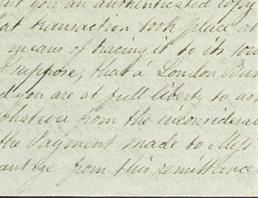 you an authenticated copy
at transaction took place at
means of tracing it to its sou
I suppose, that a London Ban
d you are at full liberty to as
whatever from the inconsiderat
the Payment made to Mess
antge from this remittance